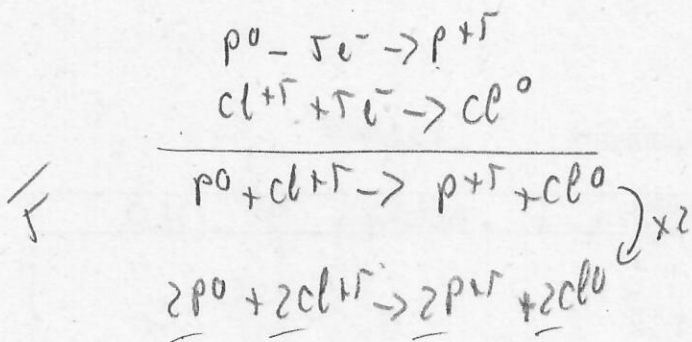 p⁰ - 5e⁻ -> p⁺⁵
cl⁺⁵ + 5e⁻ -> cl⁰
p⁰ + cl⁺⁵ -> p⁺⁵ + cl⁰
x2
2p⁰ + 2cl⁺⁵ -> 2p⁺⁵ + 2cl⁰